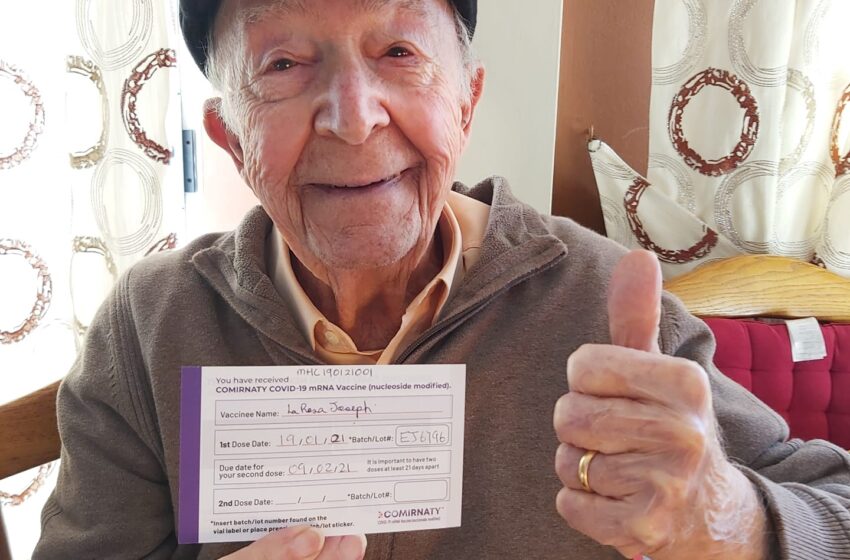 MHC190121001
You have received
COMIRNATY COVID-19 mRNA Vaccine (nucleoside modified).
Vaccinee Name: La Rosa Joseph
1st Dose Date: 19/01/21 *Batch/Lot#: EJ6796
Due date for
your second dose: 09/02/21
It is important to have two
doses at least 21 days apart
2nd Dose Date: / / *Batch/Lot#:
*Insert batch/lot number found on the
vial label or place
lot sticker.
COMIRNATY™